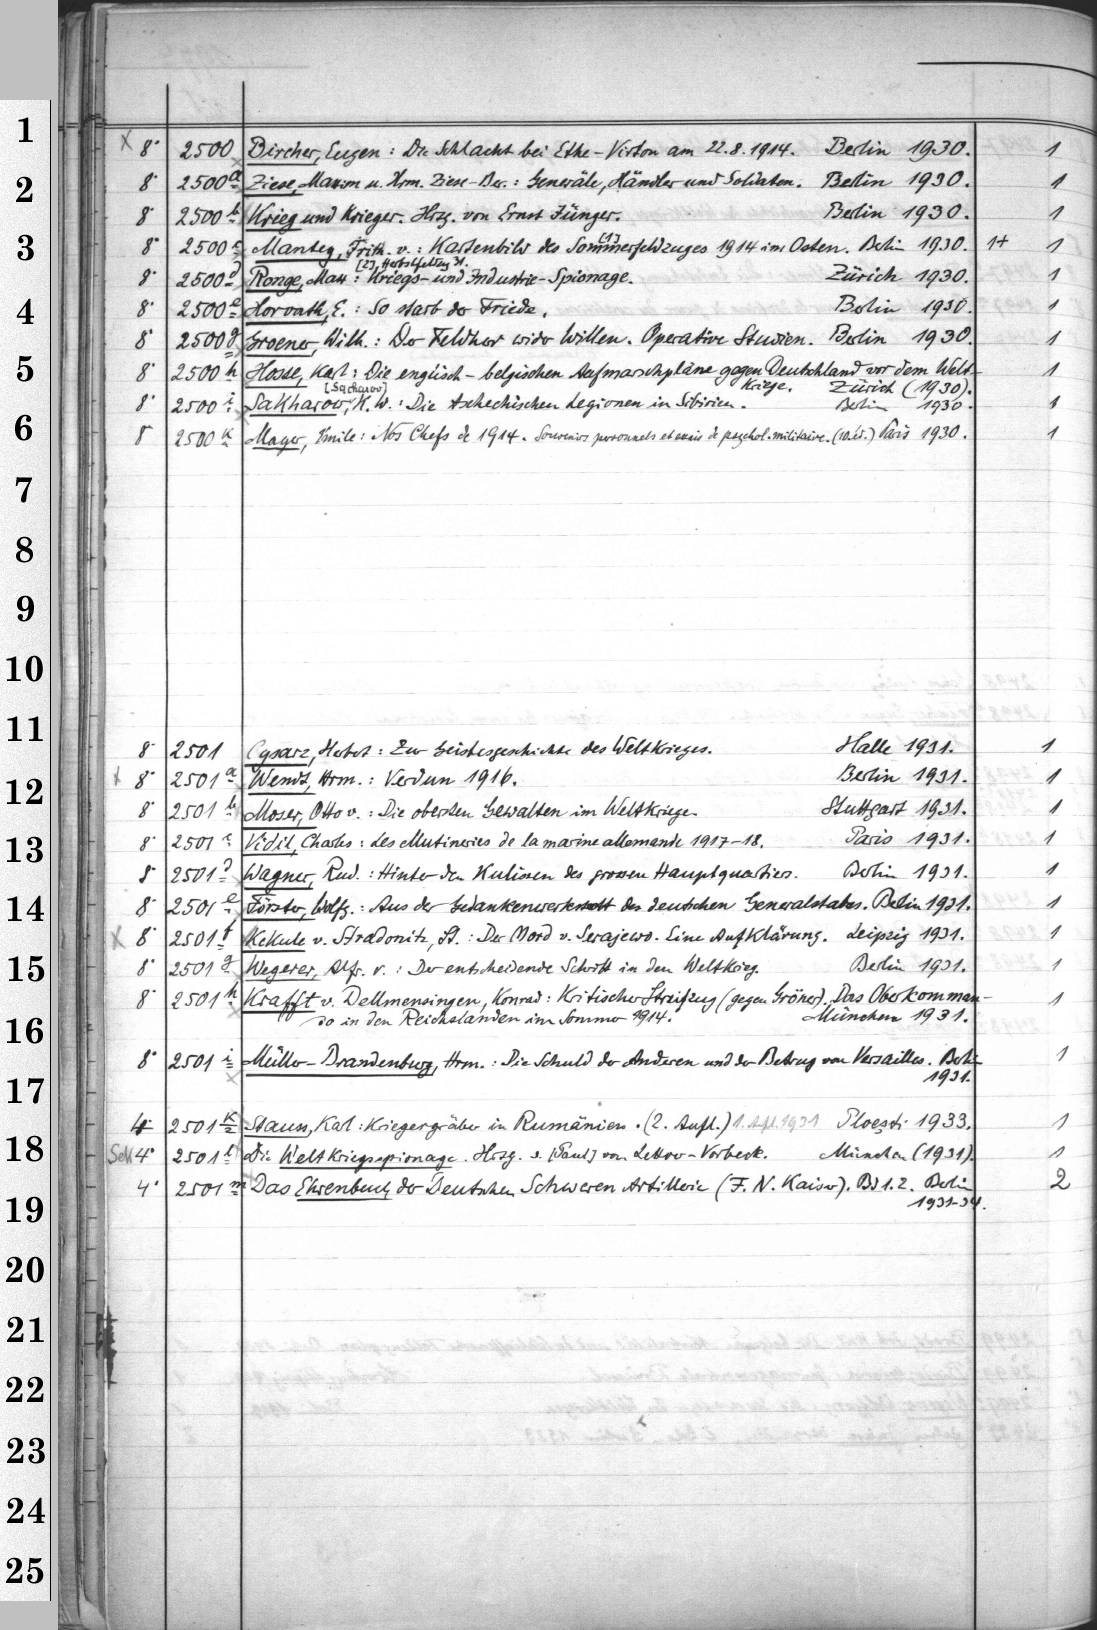 1
x 8° 2500 Bircher, Eugen: Die Schlacht bei Ethe-Virton am 22.8.1914. Berlin 1930. 1
2
8° 2500 a Ziese, Maxim u. Hrm. Ziese-Ber.: Generäle, Händler und Soldaten. Berlin 1930. 1
8° 2500 b Krieg und Krieger. Hrsg. von Ernst Jünger. Berlin 1930. 1
3
8° 2500 c Mantey, Frith. v.: Kartenbild des Sommerfeldzuges [1] 1914 im Osten. Berlin 1930. 1+ 1
[2], Herbstfeldzug 31.
8° 2500 d Ronge, Max: Kriegs- und Industrie-Spionage. Zürich 1930. 1
4
8° 2500 e Horvath, E.: So starb der Friede. Berlin 1930. 1
8° 2500 g Groener, Wilh.: Der Feldherr wider Willen. Operative Studien. Berlin 1930. 1
5
8° 2500 h Hosse, Karl: Die englisch-belgischen Aufmarschpläne gegen Deutschland vor dem Welt- 1
kriege. Zürich (1930).
[Sacharow]
8° 2500 i Sakharow, K. W.: Die tschechischen Legionen in Sibirien. Berlin 1930. 1
6
8° 2500 k Mayer, Emile: Nos Chefs de 1914. Souvenirs personnels et essais de psychol. militaire. (10. éd.) Paris 1930. 1
7
8
9
10
11
8° 2501 Cysarz, Herbert: Zur Geistesgeschichte des Weltkrieges. Halle 1931. 1
x 8° 2501 a Wendt, Hrm.: Verdun 1916. Berlin 1931. 1
12
8° 2501 b Moser, Otto v.: Die obersten Gewalten im Weltkriege. Stuttgart 1931. 1
13
8° 2501 c Vidil, Charles: Les Mutineries de la marine allemande 1917-18. Paris 1931. 1
8° 2501 d Wagner, Rud.: Hinter den Kulissen des grossen Hauptquartiers. Berlin 1931. 1
14
8° 2501 e Förster, Wolfg.: Aus der Gedankenwerkstatt des deutschen Generalstabes. Berlin 1931. 1
x 8° 2501 f Kekule v. Stradonitz, St.: Der Mord v. Serajewo. Eine Aufklärung. Leipzig 1931. 1
15
8° 2501 g Wegerer, Alfr. v.: Der entscheidende Schritt in den Weltkrieg. Berlin 1931. 1
8° 2501 h Krafft v. Dellmensingen, Konrad: Kritischer Streifzug (gegen Gröner). Das Oberkomman- 1
do in den Reichslanden im Sommer 1914. München 1931.
16
8° 2501 i Müller-Brandenburg, Hrm.: Die Schuld der Anderen und der Betrug von Versailles. Berlin 1
1931.
17
4° 2501 k Stauss, Karl: Kriegergräber in Rumänien. (2. Aufl.) 1. Aufl. 1931 Ploesti 1933. 1
18
4° 2501 l Die Weltkriegsspionage. Hrsg. v. [Paul] von Lettow-Vorbeck. München (1931). 1
4° 2501 m Das Ehrenbuch der Deutschen Schweren Artillerie (F. N. Kaiser). Bd 1.2. Berlin 2
1931-34.
19
20
21
22
23
24
25